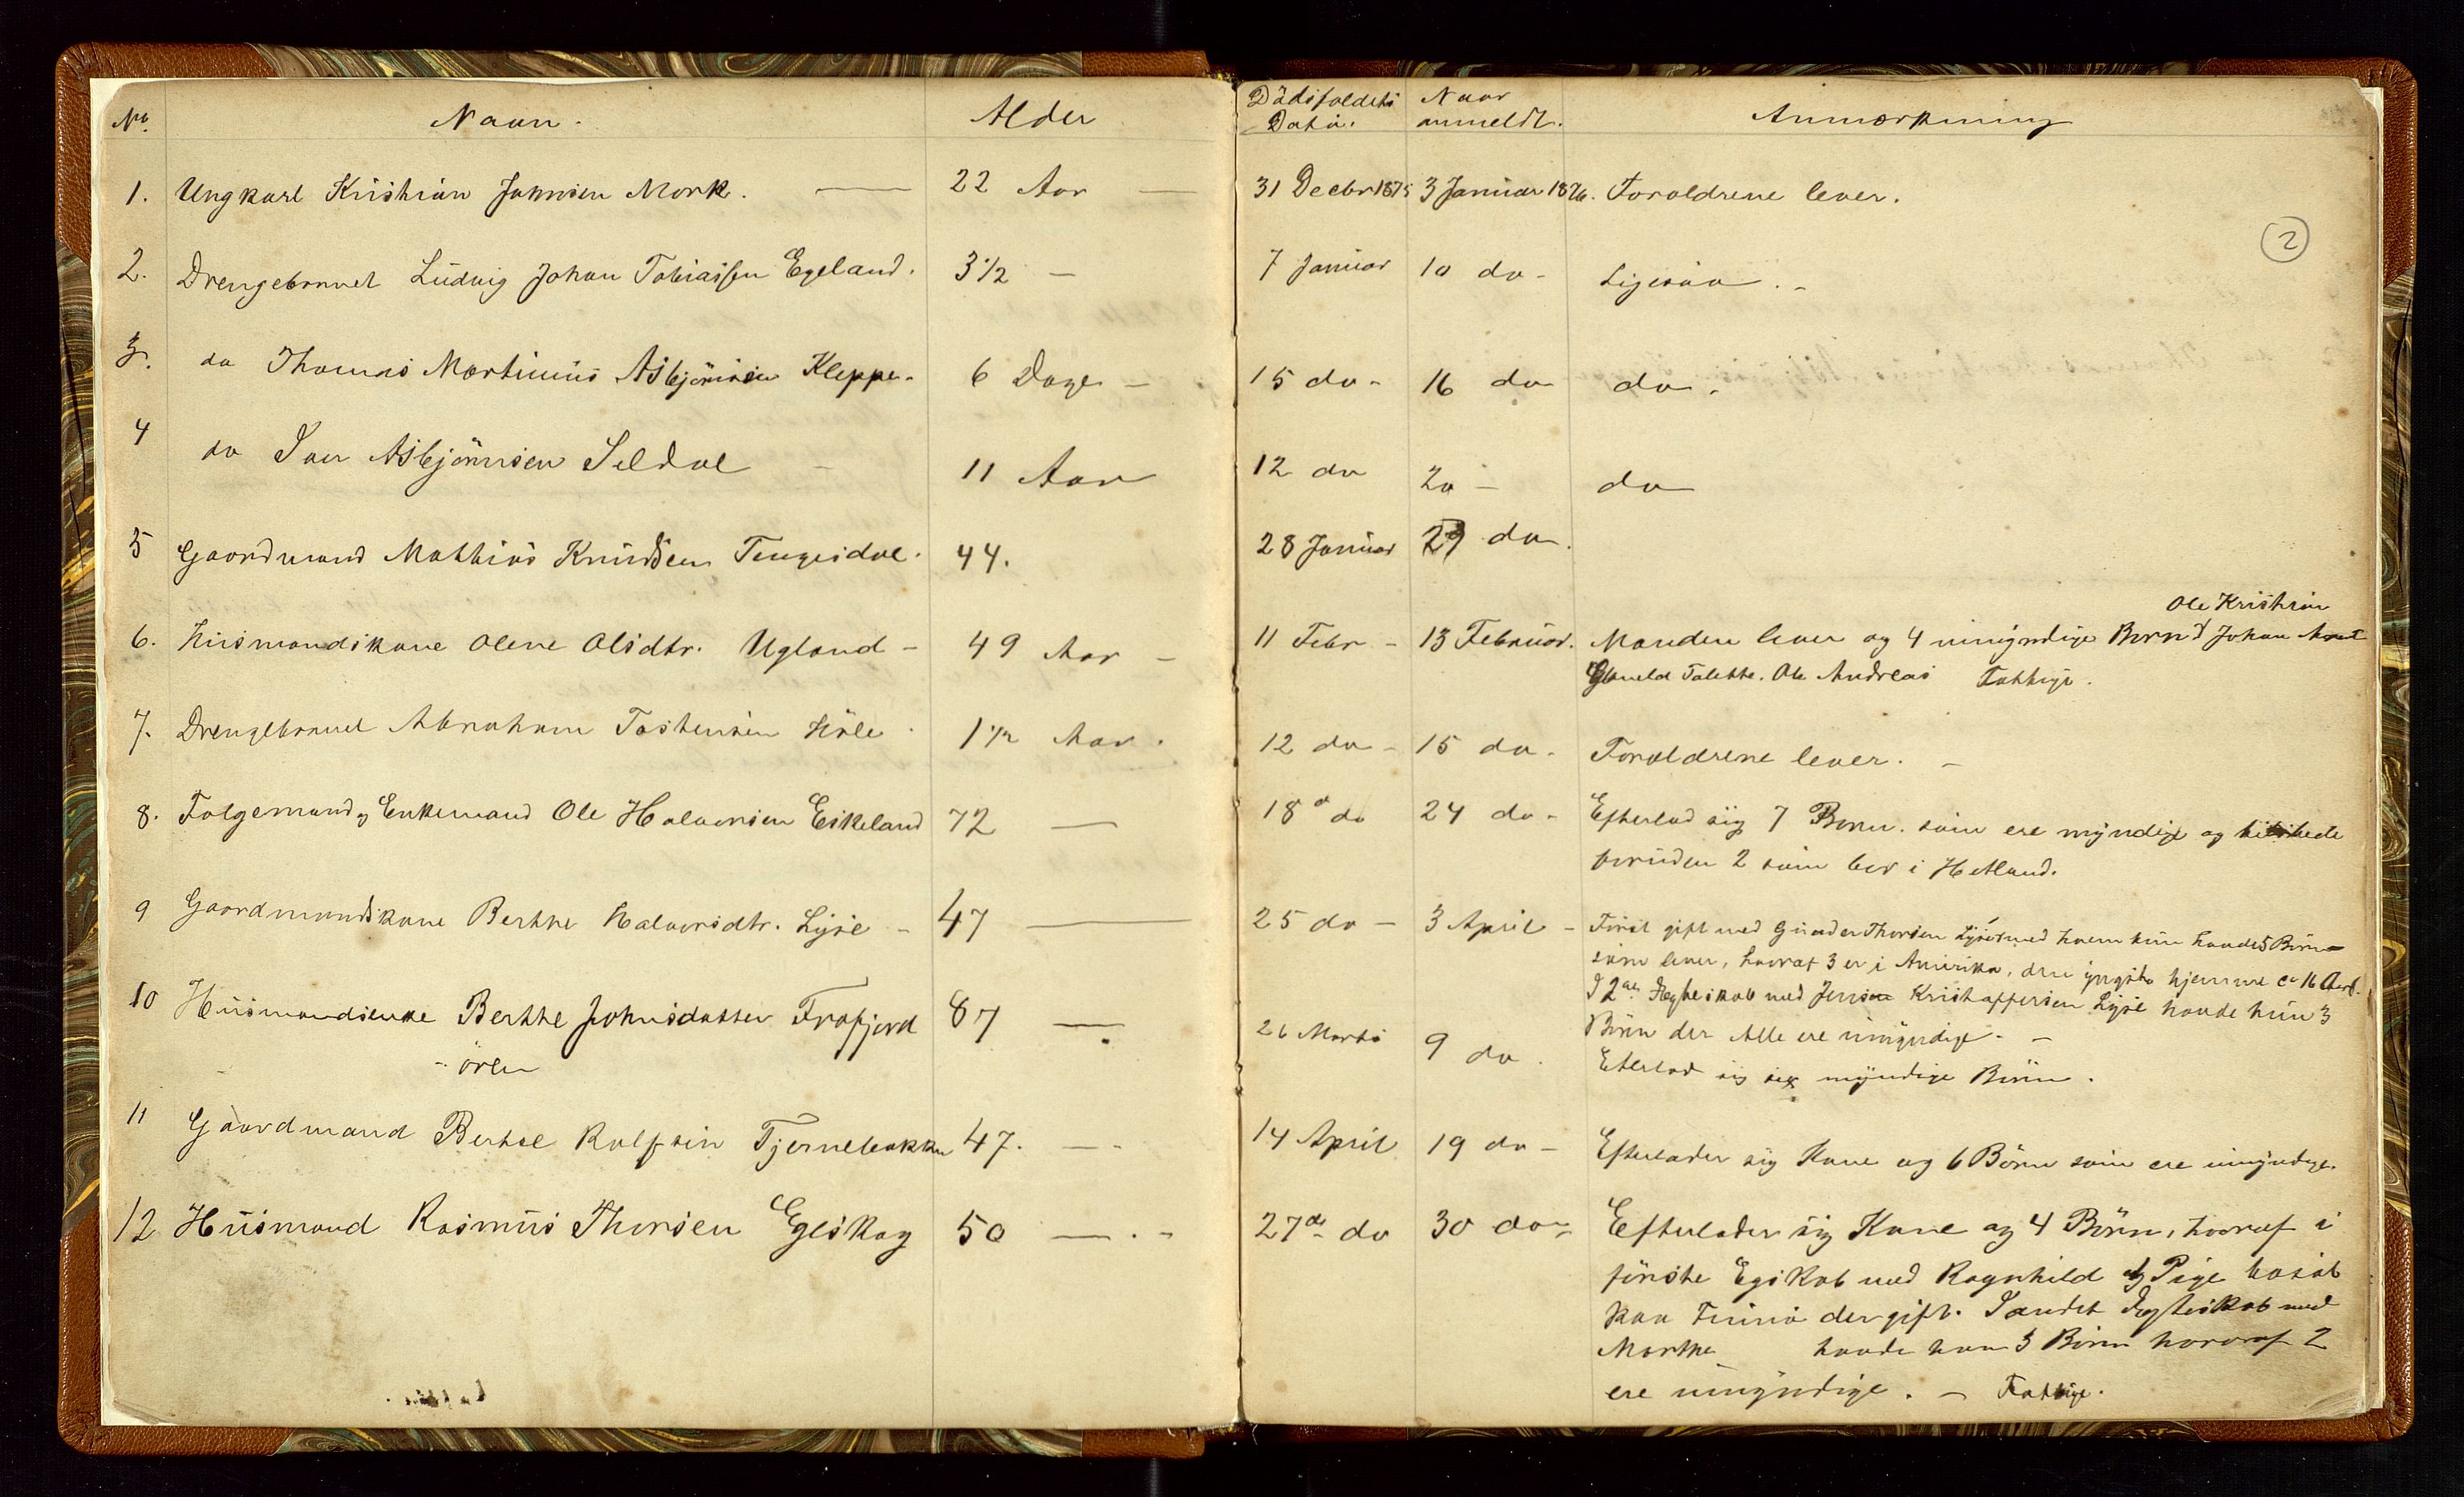 No. Navn. Alder Dödsfaldets Data. Naar anmeldt. Anmærkning
2
1. Ungkarl Kristian Jonnsen Mork. — 22 Aar — 31 Decbr 1875 3 Januar 1876. Foraldrene lever.
2. Drengebarnet Ludvig Johan Tobiassen Egeland. 3 1/2 — 7 Januar 10 do - Ligesaa. -
3. do Thomas Martinius Asbjörnsen Kleppe. 6 Dage - 15 do - 16 do do.
4 do Iver Asbjörnsen Seldal - 11 Aar 12 do 20 - do
5 Gaardmand Mathias Knudsen Tengesdal. 44. 28 Januar 29 do.
Ole Kristian
6. Husmandskone Olene Olsdtr. Ugland - 49 Aar - 11 Febr - 13 Februar. Manden lever og 4 umyndige Börn Johan
Talette. Ole Andreas Fattige.
7. Drengebarnet Abraham Tostensen Höle. 1 1/2 Aar. 12 do - 15 do. Foraldrene lever. -
8. Folgemand og Enkemand Ole Halvorsen Eikeland 72 — 18 do 24 do - Efterlod sig 7 Börn. som ere myndige og
foruden 2 som bor i Hetland.
9 Gaardmandskone Berthe Halvorsdtr. Lyse - 47 — 25 do - 3 April - Först gift med Gunder Thorsen Lyse med hvem hun havde 5 Börn
som lever, hvoraf 3 er i Amerika, den yngste hjemme ca 16 Aar.
I 2det Ægteskab med Jens Kristoffersen Lyse havde hun 3
Börn der Alle ere umyndige. -
10 Husmandsenke Berthe Johnsdatter Frafjord 87 — 26 Marts 9 do. Efterlod sig sex myndige Börn.
- ören
11 Gaardmand Berthel Rolfsen Tjernebakken 47. — - 14 April 19 do - Efterlader sig Kone og 6 Börn som ere umyndige.
12 Husmand Rasmus Thorsen Egeskog 50 — . - 27de do 30 do - Eefterlader sig Kone og 4 Börn, hvoraf i
förste Egskab med Ragnhild Pige bosat
paa der gift. I andet Ægteskab med
Marthe havde han 3 Börn hvoraf 2
ere umyndige. - Fattige.